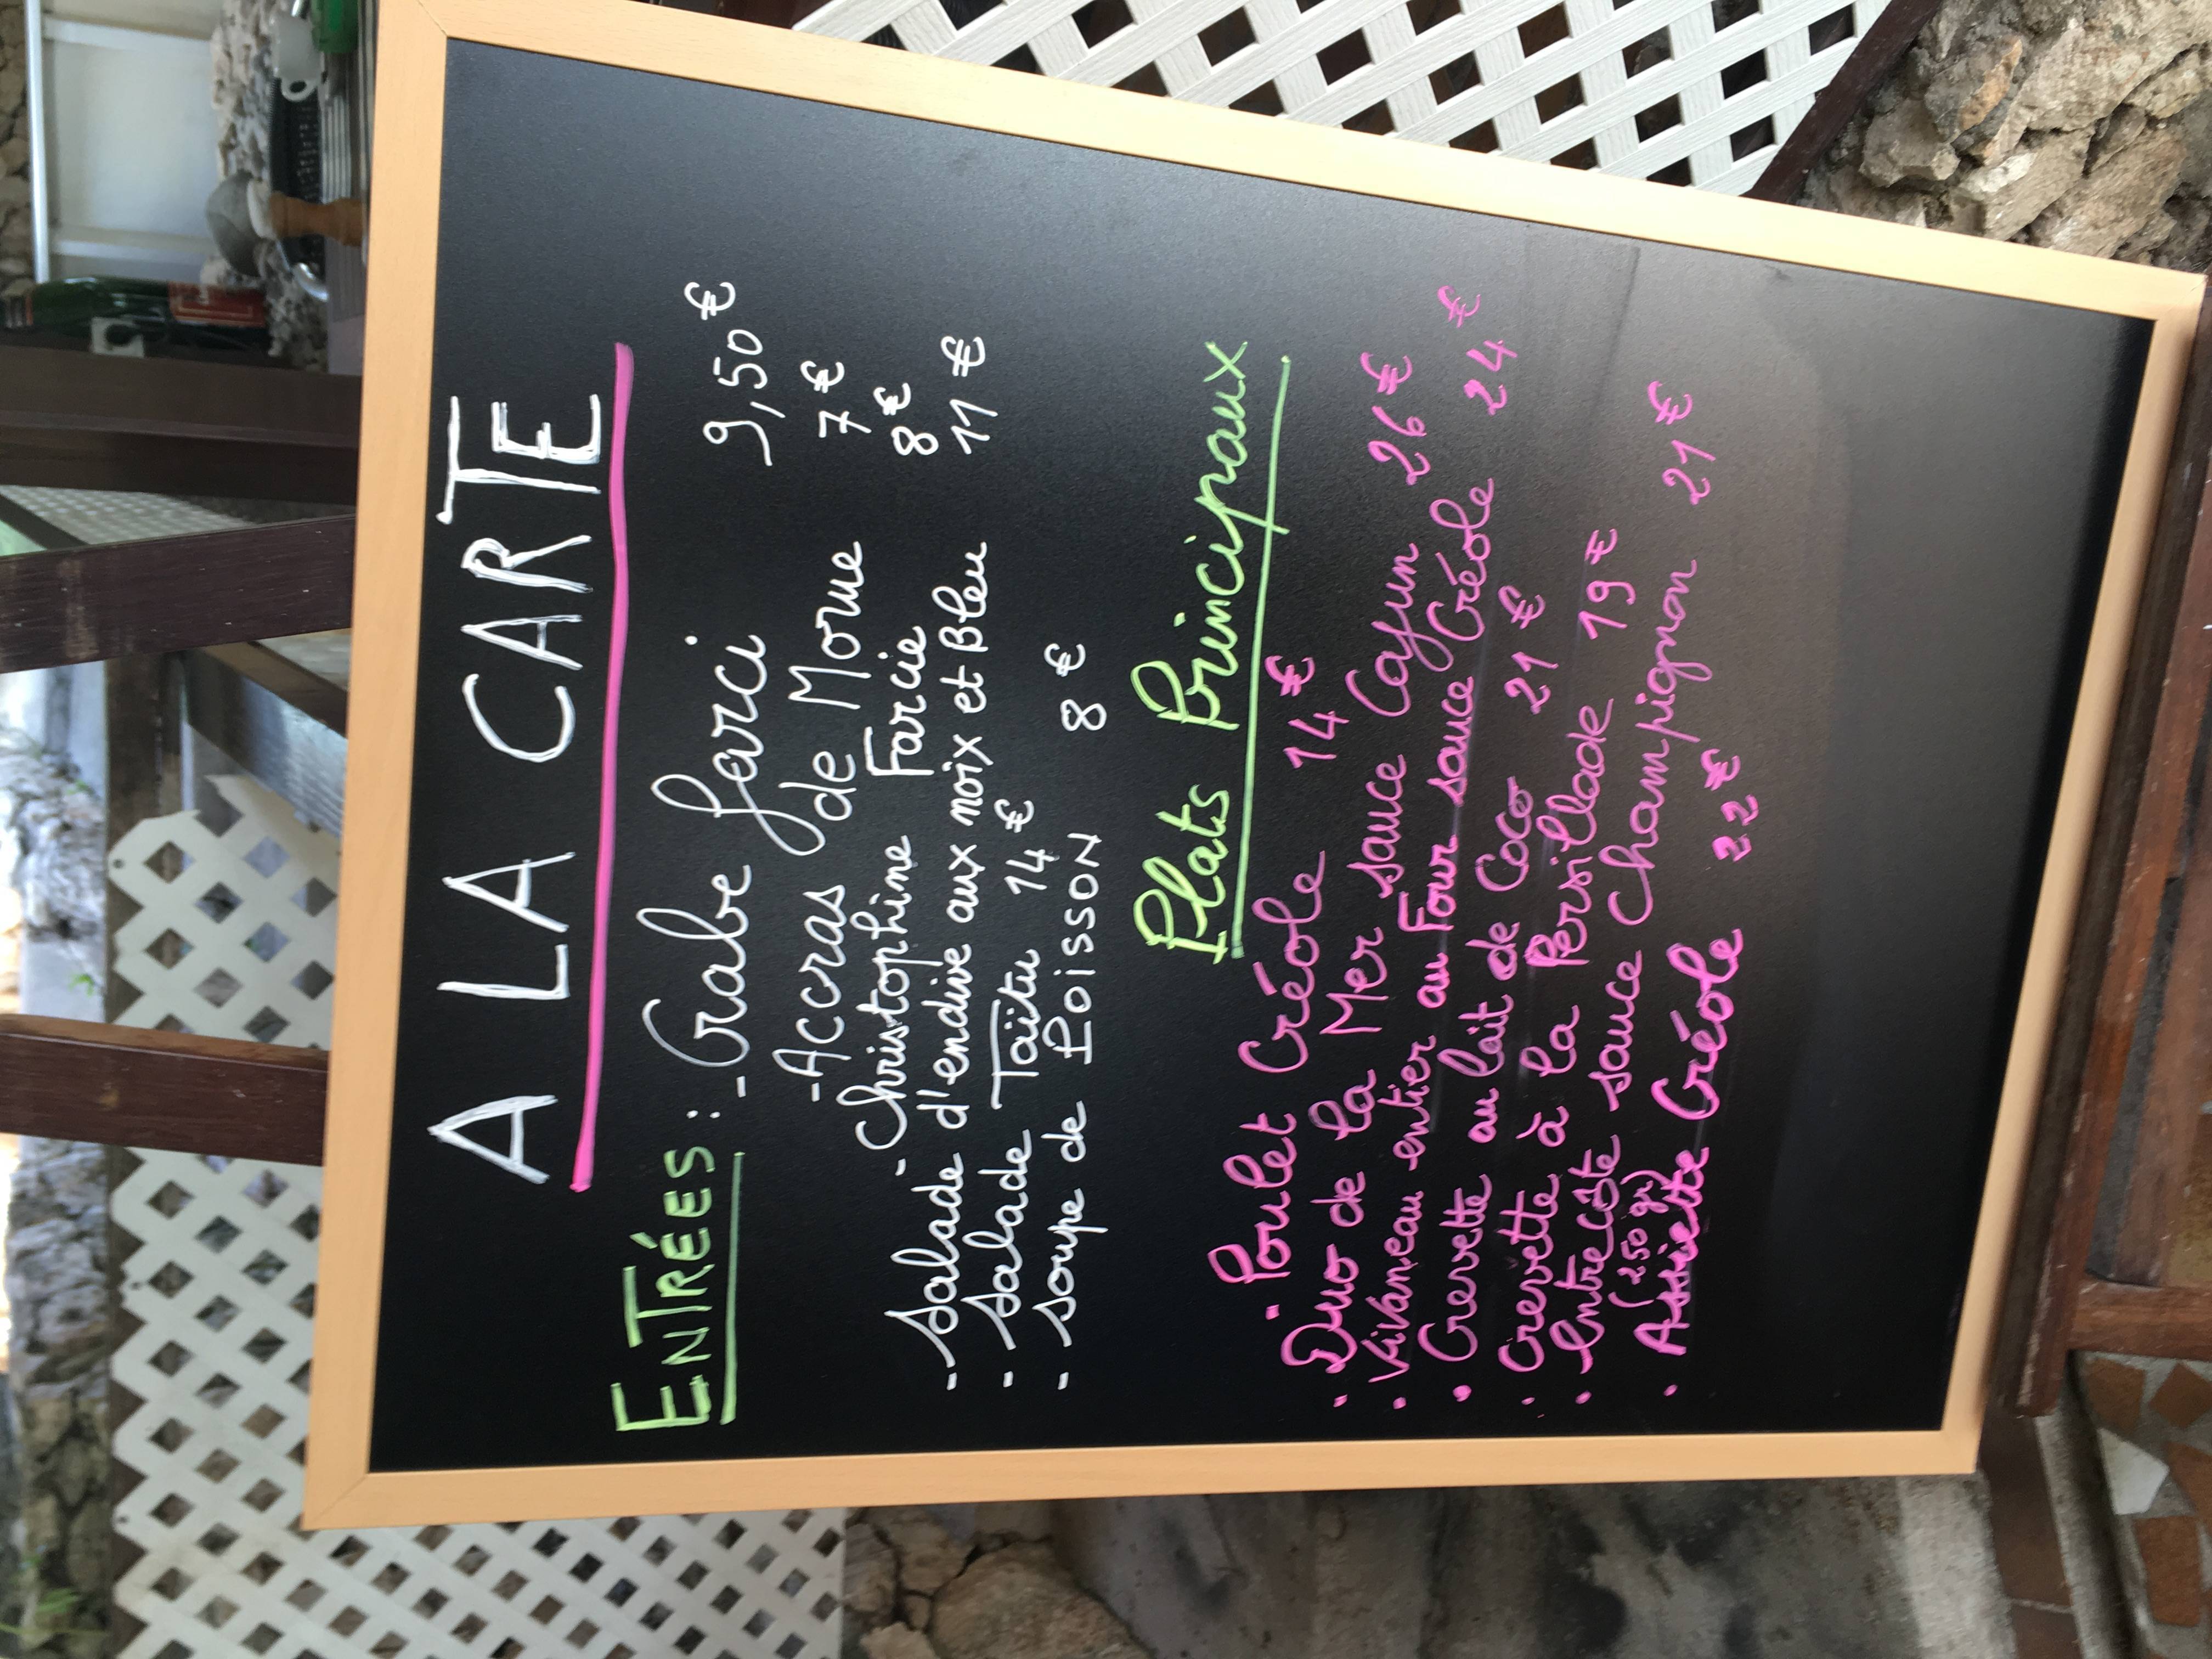 A LA CARTE
ENTRÉES : - Crabe farci 9,50 €
- Accras de Morue 7 €
- Christophine Farcie 8 €
- Salade d'endive aux noix et Bleu 11 €
- Salade Taïtu 14 €
- soupe de POISSON 8 €
Plats Principaux
- Poulet Créole 14 €
• Duo de la Mer sauce Cajun 26 €
• Vivaneau entier au Four sauce Créole 24 €
• Crevette au lait de Coco 21 €
• Crevette à la Persillade 19 €
• Entrecôte sauce Champignon 21 €
(250 gr)
• Assiette Créole 22 €